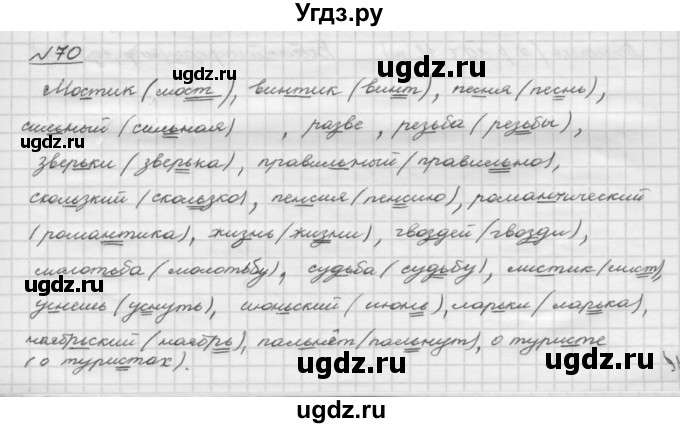 Угдз.ру
№70
Мостик (мост), винтик (винт), песня (песнь),
сильный (сильная) , разве , резьба (резьбы),
зверьки (зверька), правильный (правильно),
скользкий (скользко), пенсия (пенсию), романтический
(романтика), жизнь (жизни), гвоздей (гвозди),
молотьба (молотьбу), судьба (судьбу), листик (лист),
уснёшь (уснуть), июньский (июнь), ларьки (ларька),
ноябрьский (ноябрь), пальнёт (пальнут), о туристе
(о туристах).
ugdz.ru
ugdz.ru
ugdz.ru
ugdz.ru
ugdz.ru
ugdz.ru
ugdz.ru
ugdz.ru
ugdz.ru
ugdz.ru
ugdz.ru
ugdz.ru
ugdz.ru